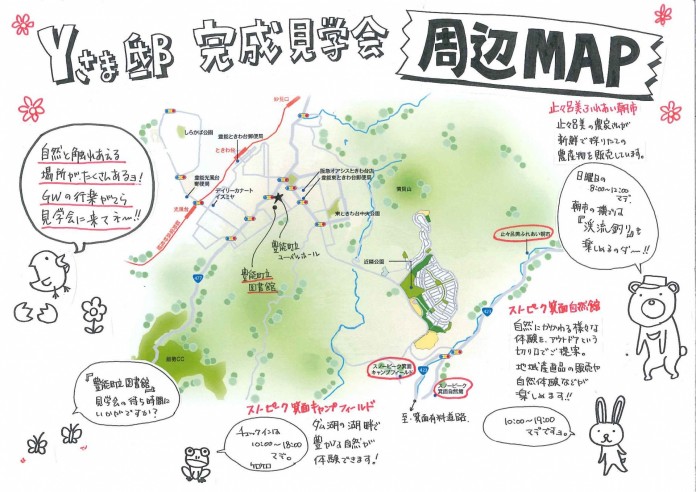 Yさま邸 完成見学会 周辺MAP
自然と触れあえる
場所がたくさんあるョ!
GWの行楽がてら
見学会に来てネ〜!!
止々呂美ふれあい朝市
止々呂美の農家さんが
新鮮で採りたての
農産物を販売しています。
日曜日の
8:00〜12:00
マデ。
朝市の横では
『渓流釣り』も
楽しめるのダー!!
妙見口
しろかば公園
豊能ときわ台郵便局
ときわ台
豊能光風台
郵便局
デイリーカナート
イズミヤ
光風台
阪急オアシスときわ台店
豊能東ときわ台郵便局
東ときわ台中央公園
高見山
豊能町立
ユーベルホール
豊能町立
図書館
近隣公園
止々呂美ふれあい朝市
スノーピーク箕面
キャンプフィールド
スノーピーク
箕面自然館
至・箕面有料道路
スノーピーク箕面自然館
自然にかかわる様々な
体験を、アウトドアという
切り口でご提案。
地域産直品の販売や
自然体験などが
楽しめます!!
10:00〜19:00
マデですョ。
『豊能町立図書館』
見学会の待ち時間に
いかがですか?
スノーピーク箕面キャンプフィールド
チェックインは
10:00〜18:00
マデ。
ケロケロ
ダム湖の湖畔で
豊かな自然が
体験できます!